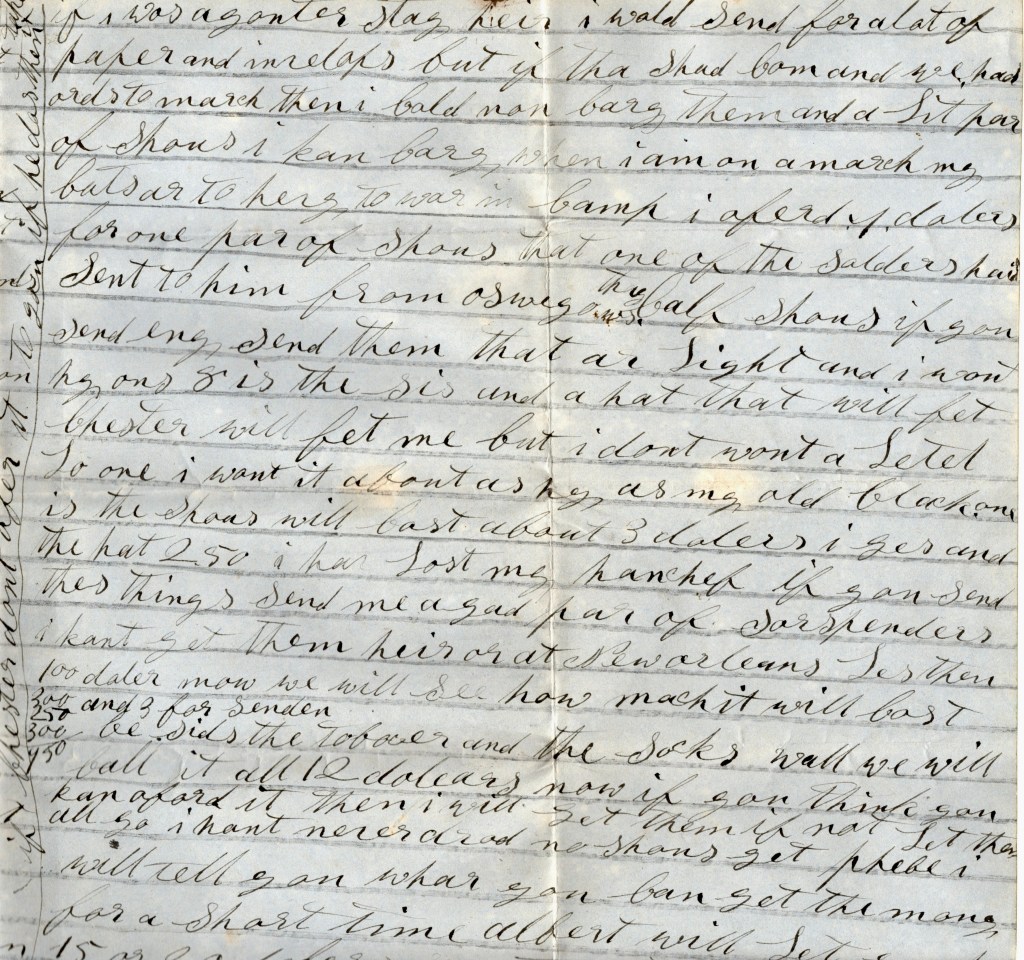 if i was a gonter stay heir i wold send for a lot of
paper and invelops but if tha shud bom and we had
ords to march then i bold non barg them and a Lit par
of shous i kan barg when i aim on a march my
buts ar to hevy to war in bamp i oferd 4 dolers
for one par of shous that one of the solders had
sent to him from oswego thy ws. balf shous if you
send eny send them that ar Light and i wont
hy ons 8 is the sis and a hat that will fet
bhester will fet me but i dont wont a Letel
Lo one i wont it about as hy as my old black one
is the shous will bost about 3 dolers i ges and
the hat 2 50 i hav Lost my hanchef if you send
thes things send me a gad par of sorspenders
i kant get them heir or at New orleans Les then
100 doler mow we will see how mach it will bost
300 and 3 for senden
250
300 be sids the tobacer and the socks wall we will
950
ball it all 12 dolears now if you think you
kan aford it then i will get them if not Let them
all go i hant never drod no shous get phebe i
will tell you whar you ban get the mony
for a short time albert will Let
15
if bhester dont after it on to you if he dos then